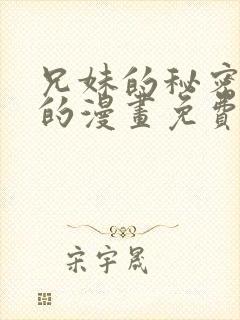 兄妹的秘密
的漫畫免費
宋宇晟